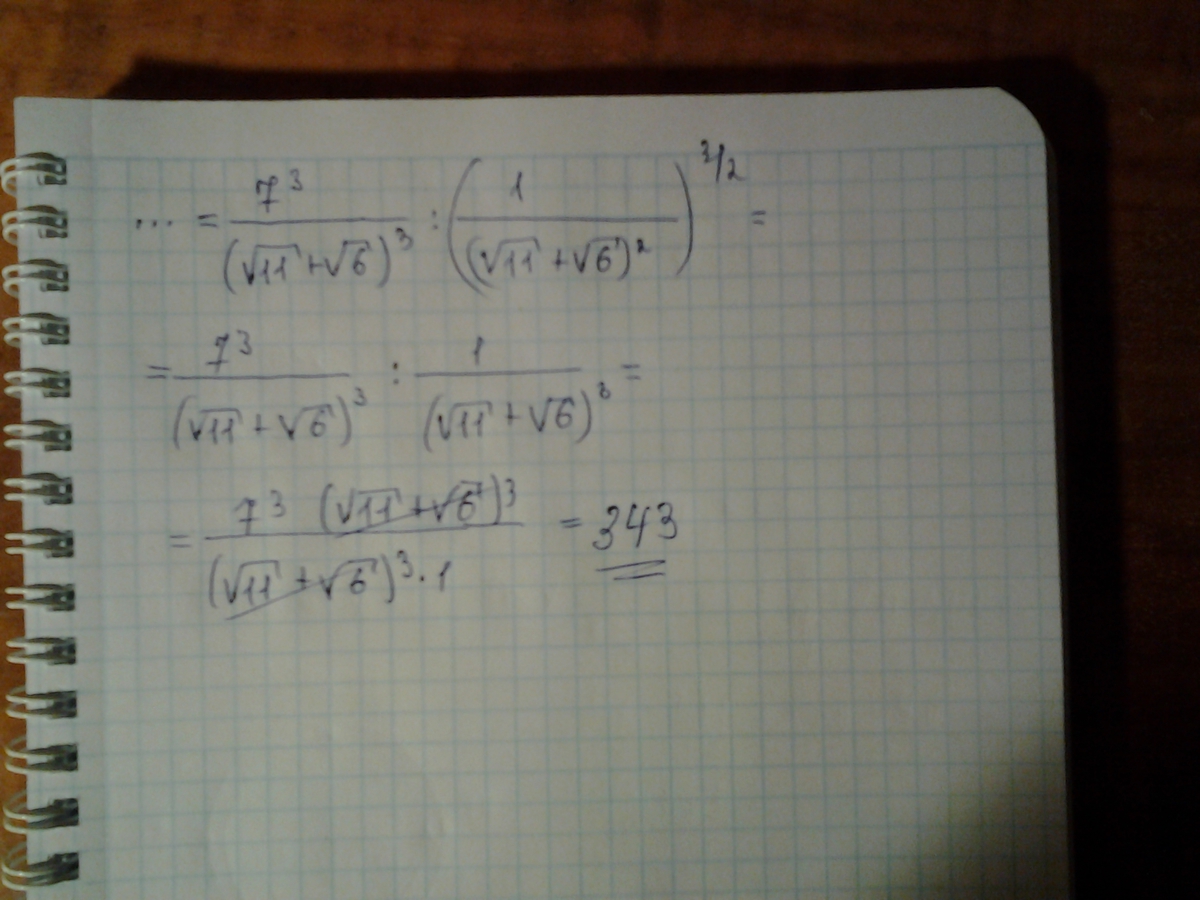 ... = 7³/(√11 + √6)³ : (1/(√11 + √6)²)^3/2 =
= 7³/(√11 + √6)³ : 1/(√11 + √6)³ =
= 7³ (√11 + √6)³/(√11 + √6)³ · 1 = 343